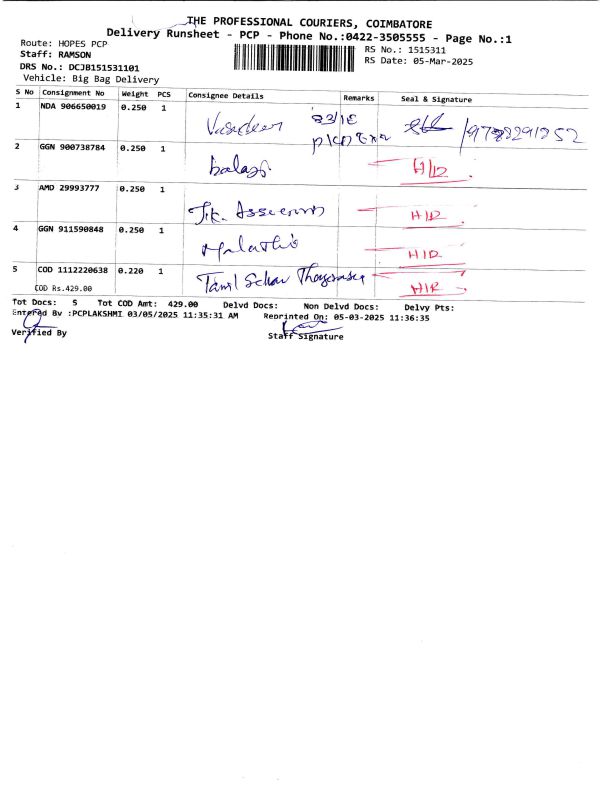 THE PROFESSIONAL COURIERS, COIMBATORE
Delivery Runsheet - PCP - Phone No.:0422-3505555 - Page No.:1
Route: HOPES PCP
Staff: RAMSON
DRS No.: DCJB151531101
Vehicle: Big Bag Delivery
RS No.: 1515311
RS Date: 05-Mar-2025
S No Consignment No Weight PCS Consignee Details Remarks Seal & Signature
1 NDA 906650019 0.250 1
2 GGN 900738784 0.250 1 balaji H/D
3 AMD 29993777 0.250 1 H/D
4 GGN 911590848 0.250 1 Malathi H/D
5 COD 1112220638 0.220 1 Tamil
COD Rs.429.00
Tot Docs: 5 Tot COD Amt: 429.00 Delvd Docs: Non Delvd Docs: Delvy Pts:
Entered By :PCPLAKSHMI 03/05/2025 11:35:31 AM Reprinted On: 05-03-2025 11:36:35
Verified By
Staff Signature